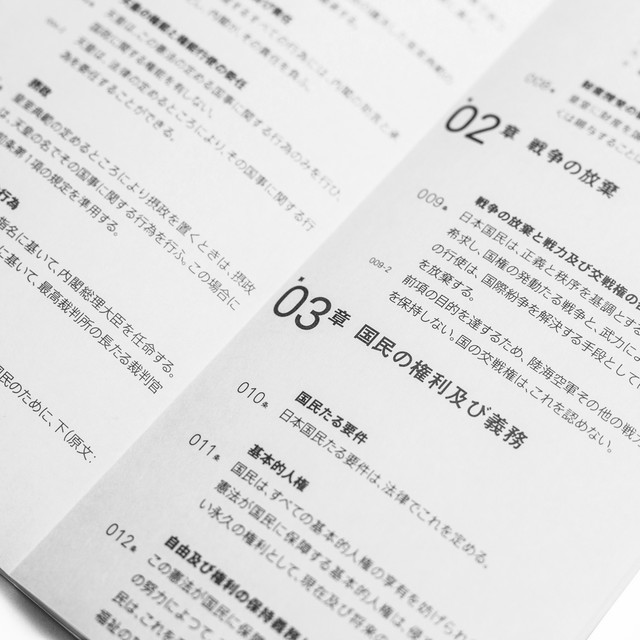 天皇の権能と権能行使の委任
天皇は、この憲法の定める国事に関する行為のみを行ひ、
国政に関する権能を有しない。
天皇は、法律の定めるところにより、その国事に関する行
為を委任することができる。
摂政
皇室典範の定めるところにより摂政を置くときは、摂政
は、天皇の名でその国事に関する行為を行ふ。この場合に
条第1項の規定を準用する。
行為
指名に基いて、内閣総理大臣を任命する。
に基いて、最高裁判所の長たる裁判官
民のために、下(原文:
02章 戦争の放棄
009条 戦争の放棄と戦力及び交戦権の
日本国民は、正義と秩序を基調とする
希求し、国権の発動たる戦争と、武力に
の行使は、国際紛争を解決する手段として
を放棄する。
009-2 前項の目的を達するため、陸海空軍その他の戦力
を保持しない。国の交戦権は、これを認めない。
03章 国民の権利及び義務
010条 国民たる要件
日本国民たる要件は、法律でこれを定める。
011条 基本的人権
国民は、すべての基本的人権の享有を妨げら
憲法が国民に保障する基本的人権は、侵
い永久の権利として、現在及び将来の
012条 自由及び権利の保持義務
この憲法が国民に保障
の努力によつて、
民は、これを
福祉の